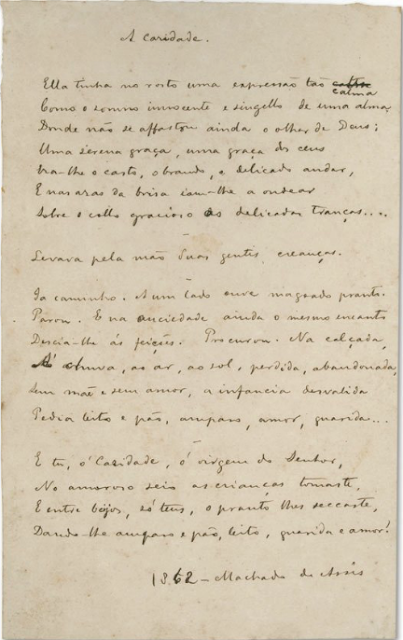 A Caridade.
Ella tinha no rosto uma expressão tão calma
Como o somno innocente e singello de uma alma
Donde não se affastou ainda o olhar de Deus;
Uma serena graça, uma graça dos ceus
Era-lhe o casto, o brando, e delicado andar,
E nas azas da brisa iam-lhe a ondear
Sobre o collo gracioso as delicadas tranças....
Levava pela mão duas gentis creanças.
Ia caminho. A um lado ouve magoado pranto.
Parou. E na anciedade ainda o mesmo encanto
Descia-lhe ás feições. Procurou. Na calçada
Á chuva, ao ar, ao sol, perdida, abandonada,
Sem mãe e sem amor, a infancia desvalida
Pedia leito e pão, amparo, amor, guarida...
E tu, ó Caridade, ó virgem do Senhor,
No amoroso seio as crianças tomaste,
E entre beijos, só teus, o pranto lhes seccaste,
Dando-lhe amparo e pão, leito, guarida e amor!
1862 - Machado de Assis